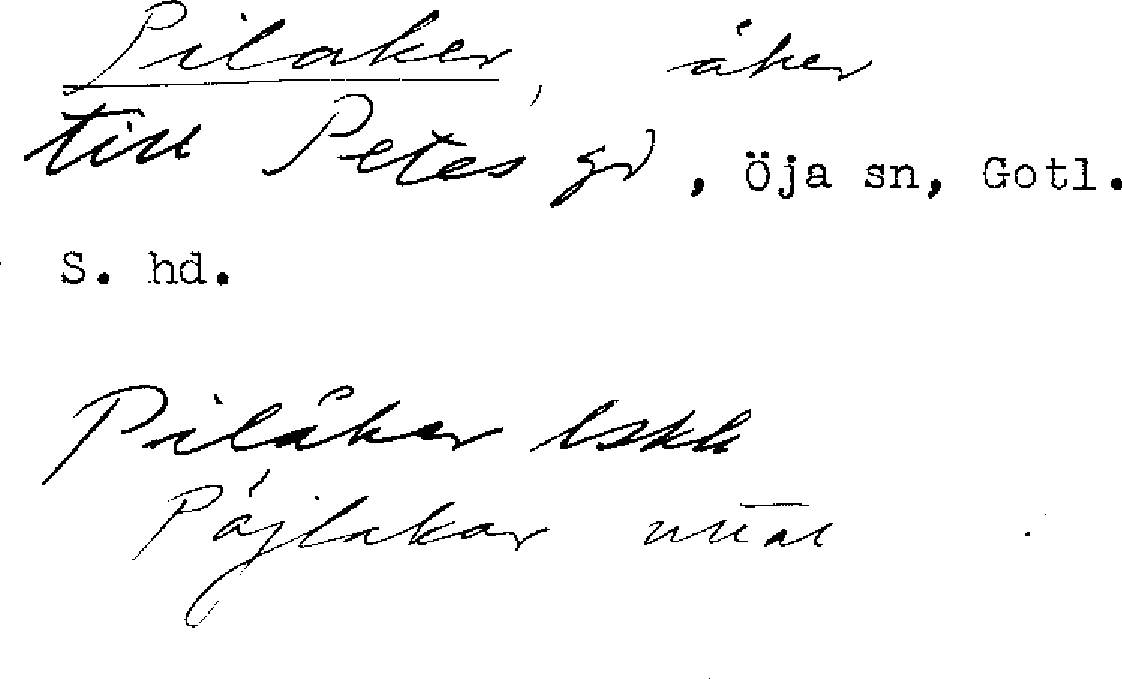 Pilaker, åker
till Petes gd, Öja sn, Gotl.
S. hd.
Pilåker lskh
Pájlakar